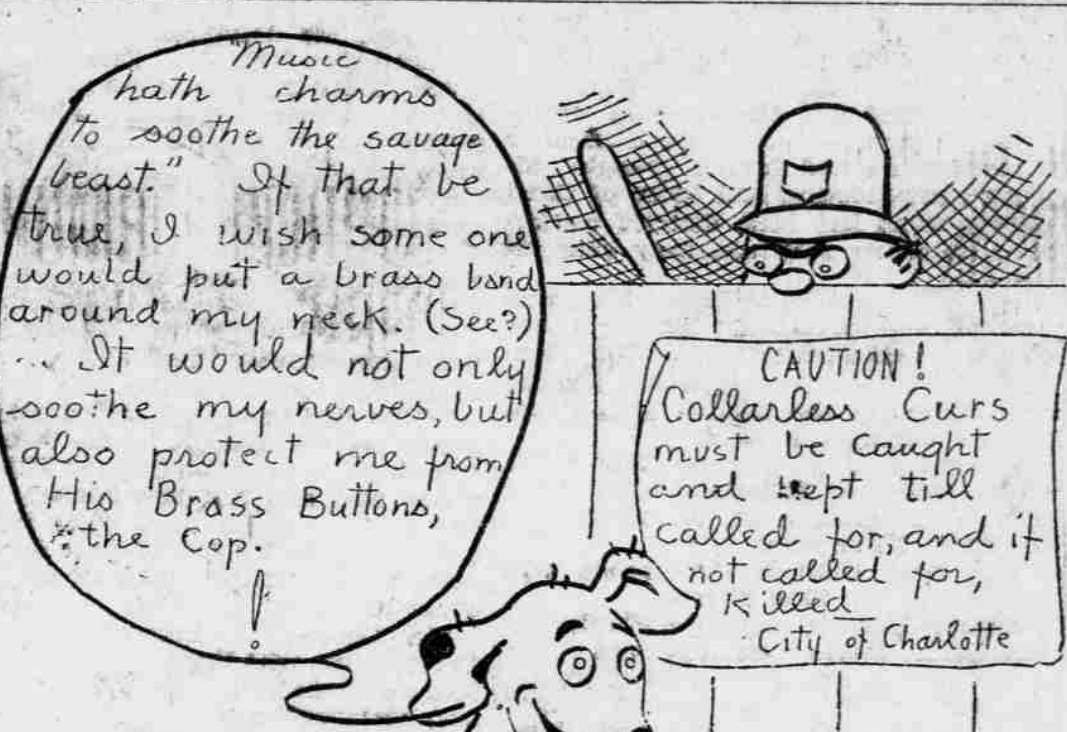 "Music
hath charms
to soothe the savage
beast." If that be
true, I wish some one
would put a brass band
around my neck. (See?)
... It would not only
soothe my nerves, but
also protect me from
His Brass Buttons,
the Cop.
!
CAUTION!
Collarless Curs
must be caught
and kept till
called for, and if
not called for,
Killed
City of Charlotte